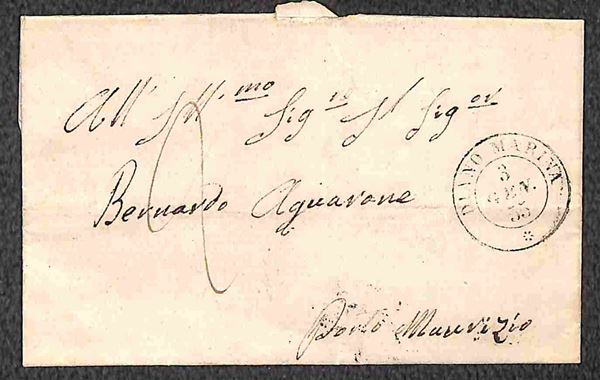 All' Ill.mo Sig.re Il Sig.or
Bernardo Aquarone
Porto Maurizio
DIANO MARINA
3
GEN.
55